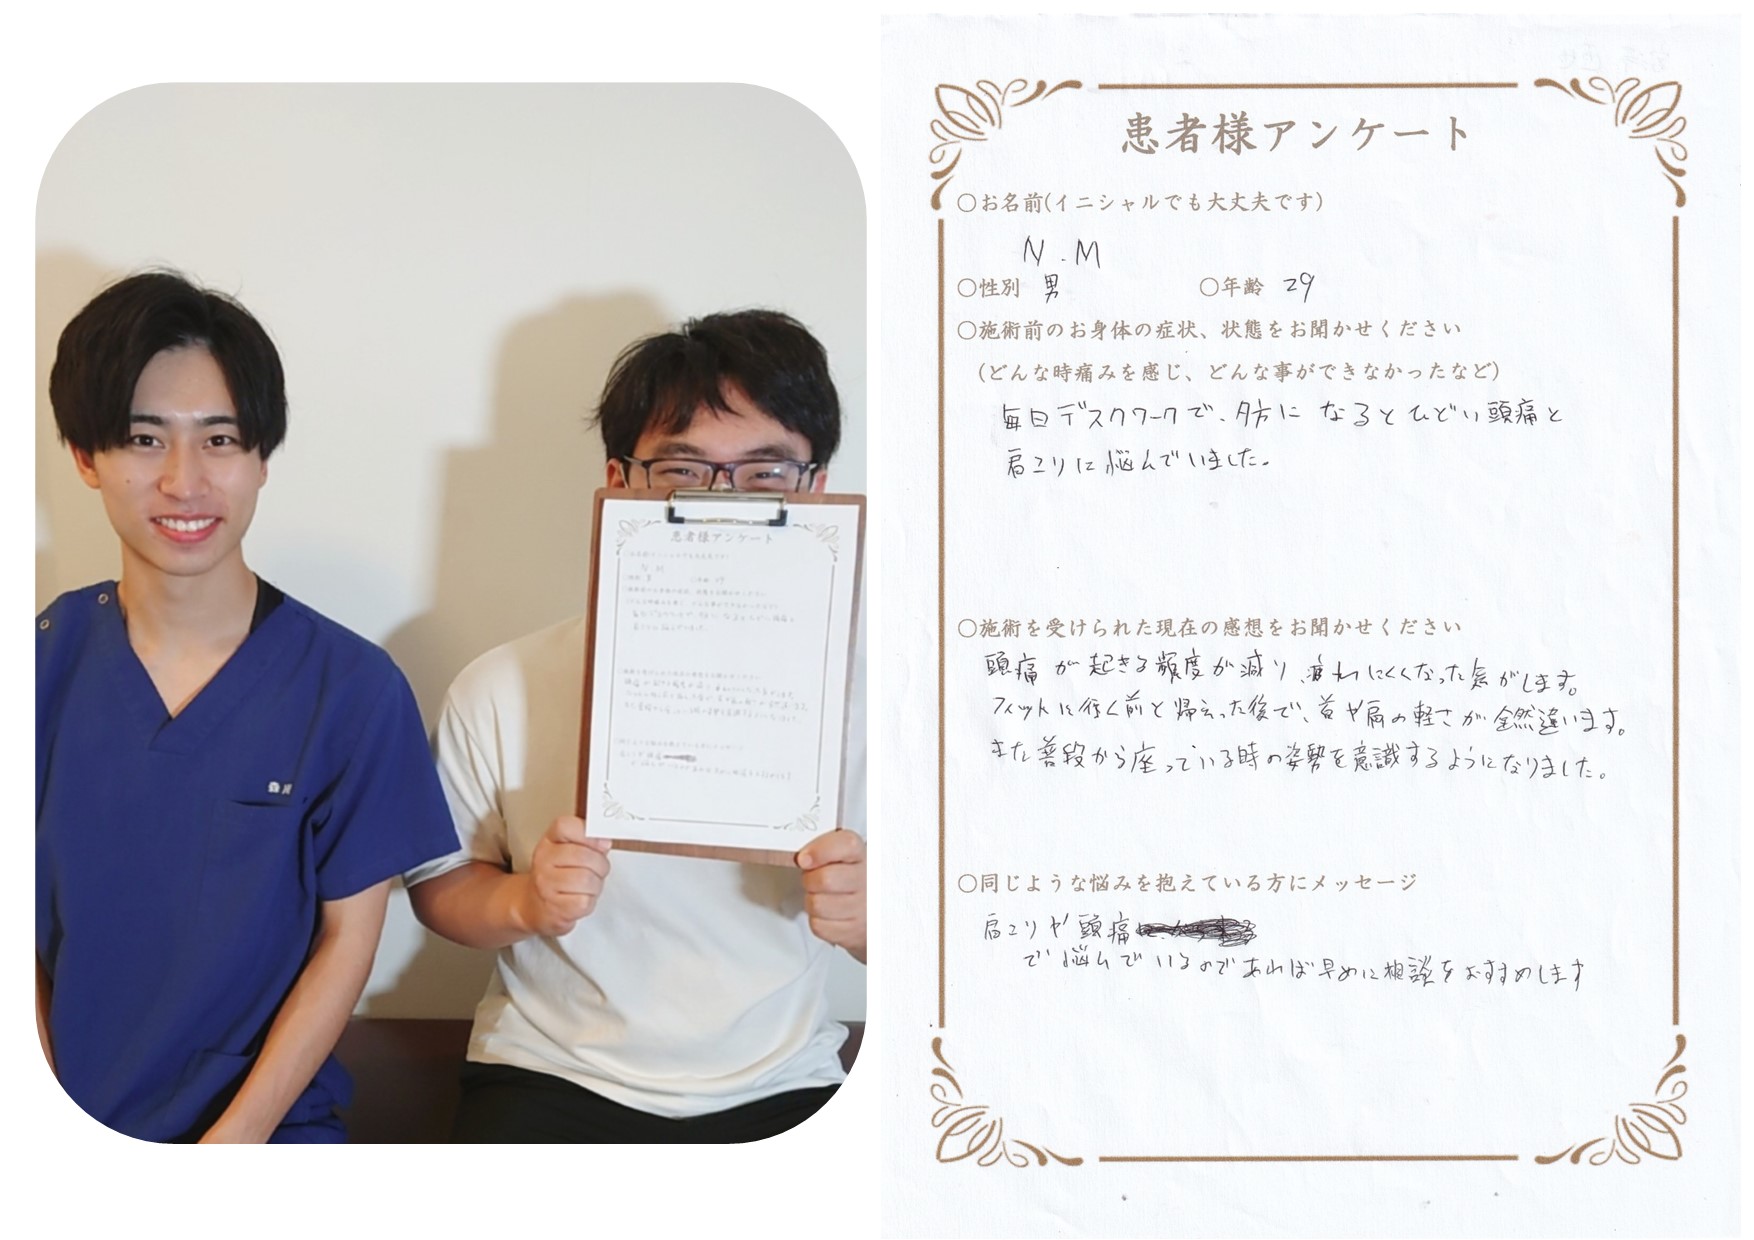 患者様アンケート
○お名前(イニシャルでも大丈夫です)
N.M
○性別 男 ○年齢 29
○施術前のお身体の症状、状態をお聞かせください
(どんな時痛みを感じ、どんな事ができなかったなど)
毎日デスクワークで、夕方になるとひどい頭痛と
肩コリに悩んでいました。
○施術を受けられた現在の感想をお聞かせください
頭痛が起きる頻度が減り、疲れにくくなった気がします。
フィットに行く前と帰った後で、首や肩の軽さが全然違います。
また普段から座っている時の姿勢を意識するようになりました。
○同じような悩みを抱えている方にメッセージ
肩コリや頭痛
で悩んでいるのであれば早めに相談をおすすめします